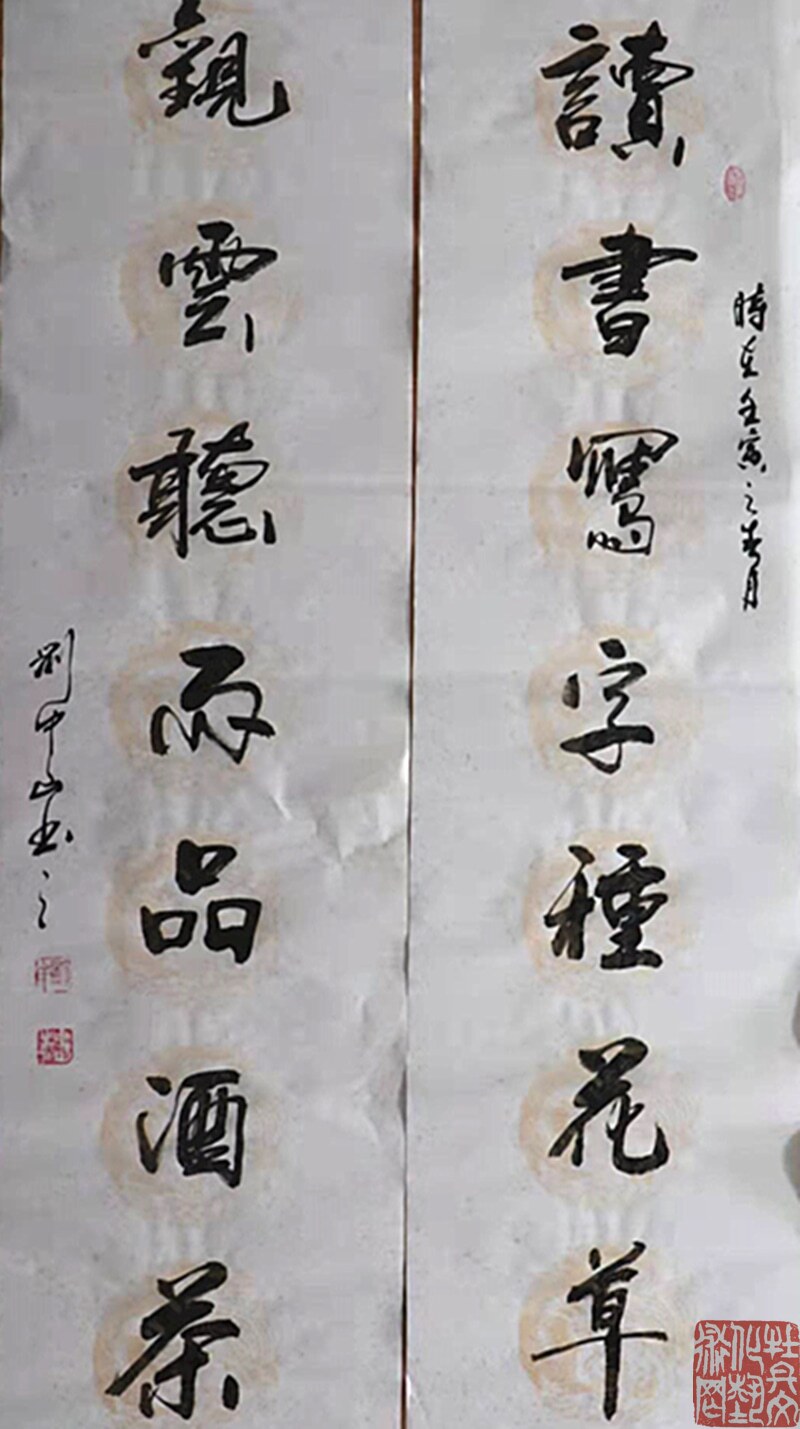 時在壬寅之春月
讀書寫字種花草
觀雲聽雨品酒茶
劉中山書之